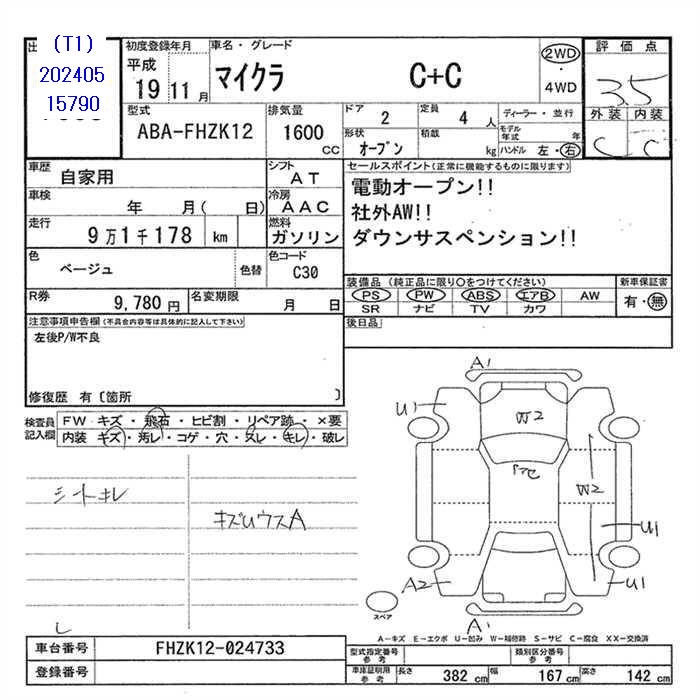 (T1)
202405
15790
初度登録年月
平成
19 11 月
車名・グレード
マイクラ C+C
2WD
・
4WD
評価点
3.5
外装 内装
C C
型式
ABA-FHZK12
排気量
1600
CC
ドア
2
定員
4 人
形状
オープン
積載
kg
ディーラー・並行
モデル
年式 年
ハンドル 左・右
車歴
自家用
シフト
AT
車検
年 月( 日)
冷房
AAC
走行
9万1千178 km
燃料
ガソリン
色
ベージュ
色替
色コード
C30
R券
9,780 円
名変期限
月 日
セールスポイント(正常に機能するものに限ります)
電動オープン!!
社外AW!!
ダウンサスペンション!!
装備品(純正品に限り○をつけてください)
PS PW ABS エアB AW
SR ナビ TV カワ
新車保証書
有・無
後日品
注意事項申告欄(不具合内容等は具体的に記入して下さい)
左後P/W不良
修復歴 有〔箇所 〕
検査員
記入欄
FW キズ・飛石・ヒビ割・リペア跡・×要
内装 キズ・汚レ・コゲ・穴・スレ・キレ・破レ
シートキレ
キズUウスA
A1
U1
W2
W2
U1
A2
U1
A1
スペア
A−キズ E−エクボ U−凹み W−補修跡 S−サビ C−腐食 XX−交換済
車台番号
FHZK12-024733
登録番号
型式指定番号
参考
類別区分番号
参考
車庫証明用
参考
長さ 382 cm 幅 167 cm 高さ 142 cm